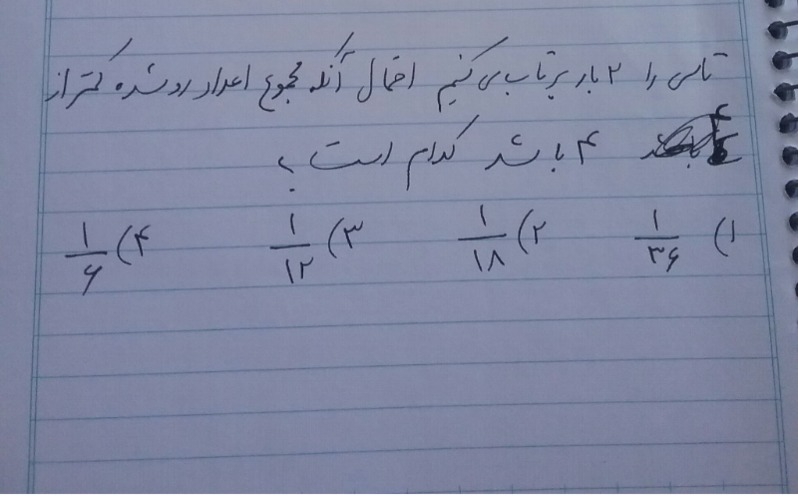 تاسی را ۲ بار پرتاب می کنیم احتمال آنکه مجموع اعداد رو شده کمتر از
۴ باشد کدام است ؟
۱) ۱/۳۶ ۲) ۱/۱۸ ۳) ۱/۱۲ ۴) ۱/۶